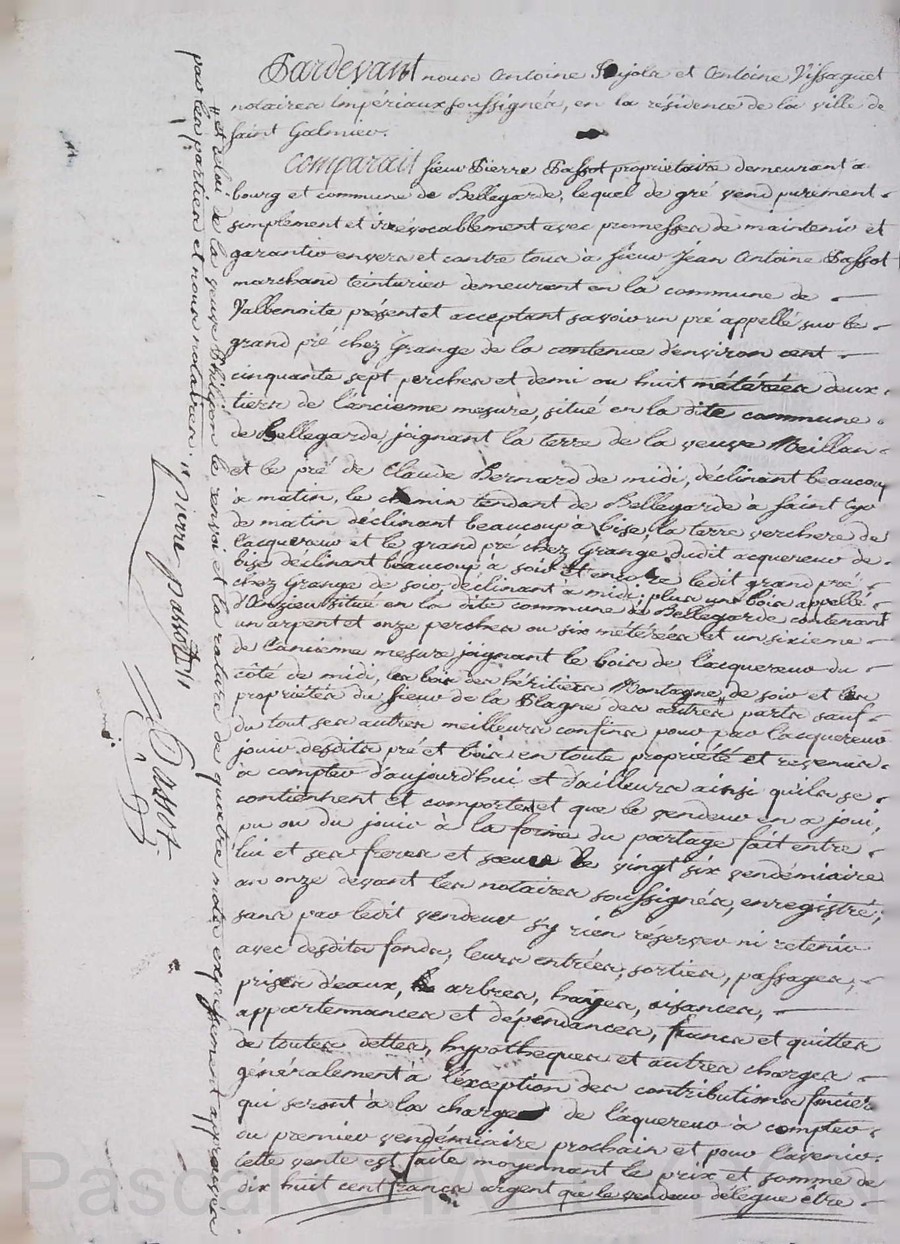 Pardevant nous Antoine Pujola et Antoine Vissaguet
notaires impériaux soussignés, en la résidence de la ville de
Saint Galmier.
Comparait sieur Pierre Passot propriétaire demeurant a
bourg et commune de Bellegarde, lequel de gré vend purement
simplement et irrévocablement avec promesses de maintenir et
garantir envers et contre tous à sieur Jean Antoine Passot
marchand teinturier demeurant en la commune de
Valbenoite présent et acceptant savoir un pré appellé sur le
grand pré chez Grange de la contenue d'environ cent
cinquante sept perches et demi ou huit métérées deux
tiers de l'encienne mesure, situé en la dite commune
de Bellegarde, joignant la terre de la veuve Meillan
et le pré de Claude Bernard de midi, déclinant beaucoup
a matin, le chemin tendant de Bellegarde à saint Cyr
de matin déclinant beaucoup à bise, la terre verchere de
l'acquereur et le grand pré chez Grange dudit acquereur de
bise déclinant beaucoup a soir et encore ledit grand pré
chez Grange de soir déclinant à midi; plus un bois appellé
d'Onzieu situé en la dite commune de Bellegarde contenant
un arpent et onze perches ou six métérées et un sixieme
de l'ancienne mesure joignant le bois de l'acquereur du
côté de midi, les bois des héritiers Montagne, de soir et les
propriétés du sieur de la Plagne des autres parts sauf
du tout ses autres meilleurs confins pour par l'acquereur
jouir desdits pré et bois en toute propriété et revenus
a compter d'aujourd'hui et d'ailleurs ainsi qu'ils se
contiennent et comportent et que le vendeur en a joui,
pu ou du jouir à la forme du partage fait entre
lui et ses freres et soeur le vingt six vendémiaire
an onze devant les notaires soussignés, enregistré;
sans par ledit vendeur s'y rien réserver ni retenir
avec desdits fonds, leurs entrées, sorties, passages,
prises d'eaux, arbres, haiges, aisances,
appartenances et dépendances, francs et quittes
de toutes dettes, hypotheques et autres charges
généralement à l'exception des contributions foncier
qui seront à la charge de l'aquereur à compter
au premier vendémiaire prochain et pour l'avenir.
Cette vente est faite moyennant le prix et somme de
dix huit cent francs argent que le vendeur délegue être
" et celui de la veuve Philipon le renvoi et la rature de quatre mots expressément approuvés
par les parties et nous notaires. "
pierre passot
Passot
Pascal CHAPETRON